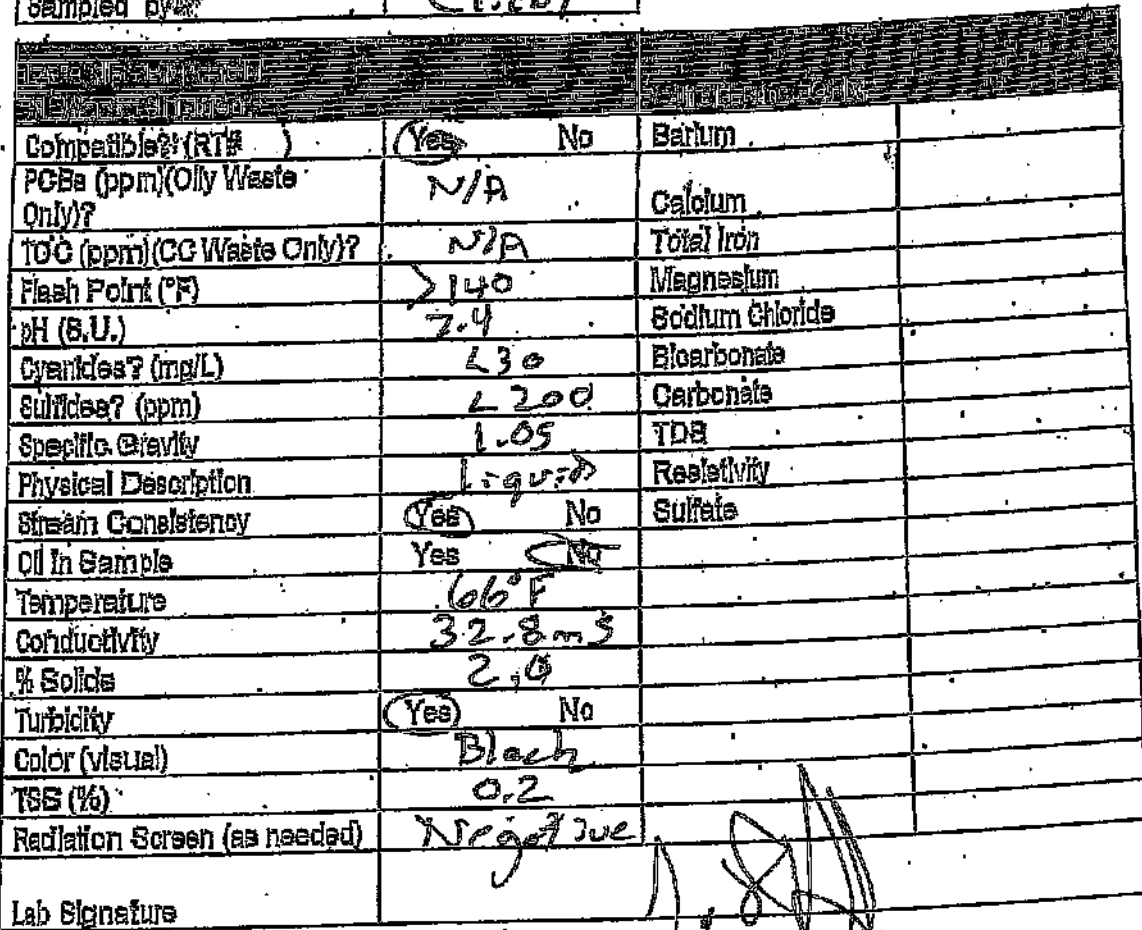 Sampled by:
Compatible? (RT# ) Yes No Barium
PCBs (ppm)(Oily Waste
Only)? N/A Calcium
TOC (ppm)(CC Waste Only)? N/A Total Iron
Flash Point (°F) >140 Magnesium
pH (S.U.) 7.4 Sodium Chloride
Cyanides? (mg/L) <30 Bicarbonate
Sulfides? (ppm) <200 Carbonate
Specific Gravity 1.05 TDS
Physical Description liquid Resistivity
Stream Consistency Yes No Sulfate
Oil In Sample Yes No
Temperature 66°F
Conductivity 32.8ms
% Solids 2.0
Turbidity Yes No
Color (visual) Black
TSS (%) 0.2
Radiation Screen (as needed) Negative
Lab Signature